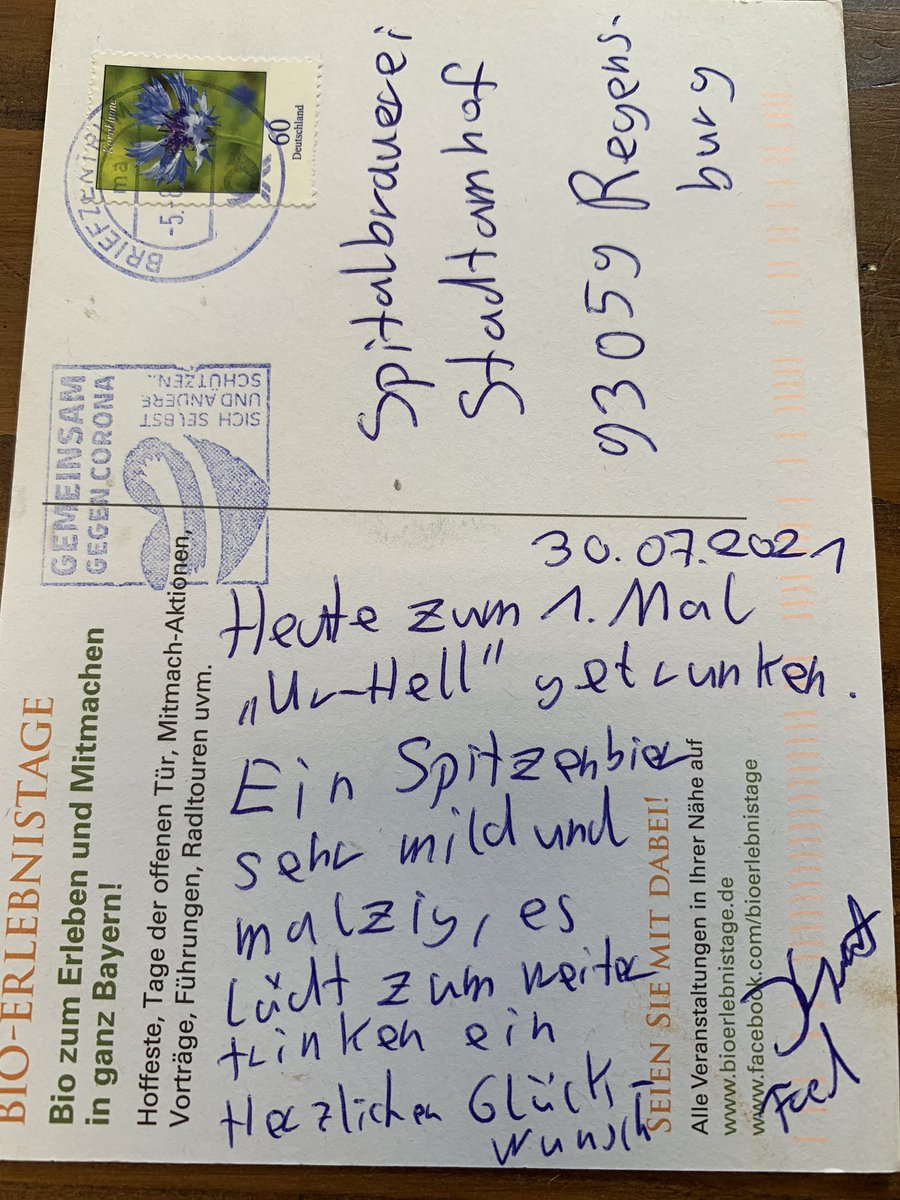 BIO-ERLEBNISTAGE
Bio zum Erleben und Mitmachen
in ganz Bayern!
Hoffeste, Tage der offenen Tür, Mitmach-Aktionen,
Vorträge, Führungen, Radltouren uvm.
30.07.2021
Heute zum 1. Mal
„Ur-Hell" getrunken.
Ein Spitzenbier
sehr mild und
malzig, es
lädt zum weiter
trinken ein
Herzlichen Glück-
wunsch
SEIEN SIE MIT DABEI!
Alle Veranstaltungen in Ihrer Nähe auf
www.bioerlebnistage.de
www.facebook.com/bioerlebnistage
GEMEINSAM
GEGEN CORONA
SICH SELBST
UND ANDERE
SCHÜTZEN..
BRIEFZENTR
ma
-5.-8
Kornblume
60
Deutschland
Spitalbrauerei
Stadtamhof
93059 Regens-
burg